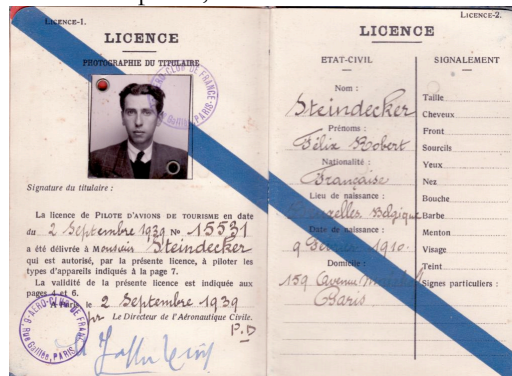 LICENCE-1.
LICENCE
PHOTOGRAPHIE DU TITULAIRE
AERO-CLUB DE FRANCE
PARIS
Signature du titulaire :
La licence de PILOTE D'AVIONS DE TOURISME en date
du 2 Septembre 1939 No 15531
a été délivrée à Monsieur Steindecker
qui est autorisé, par la présente licence, à piloter les
types d'appareils indiqués à la page 7.
La validité de la présente licence est indiquée aux
pages 4 et 6.
le 2 Septembre 1939
Le Directeur de l'Aéronautique Civile.
P.D
AERO-CLUB DE FRANCE
6, Rue Galilée, PARIS
LICENCE-2.
LICENCE
ETAT-CIVIL
Nom :
Steindecker
Prénoms :
Félix Robert
Nationalité :
Française
Lieu de naissance :
Bruxelles. Belgique
Date de naissance :
9 Février 1910.
Domicile :
159 Avenue
Paris
SIGNALEMENT
Taille
Cheveux
Front
Sourcils
Yeux
Nez
Bouche
Barbe
Menton
Visage
Teint
Signes particuliers :